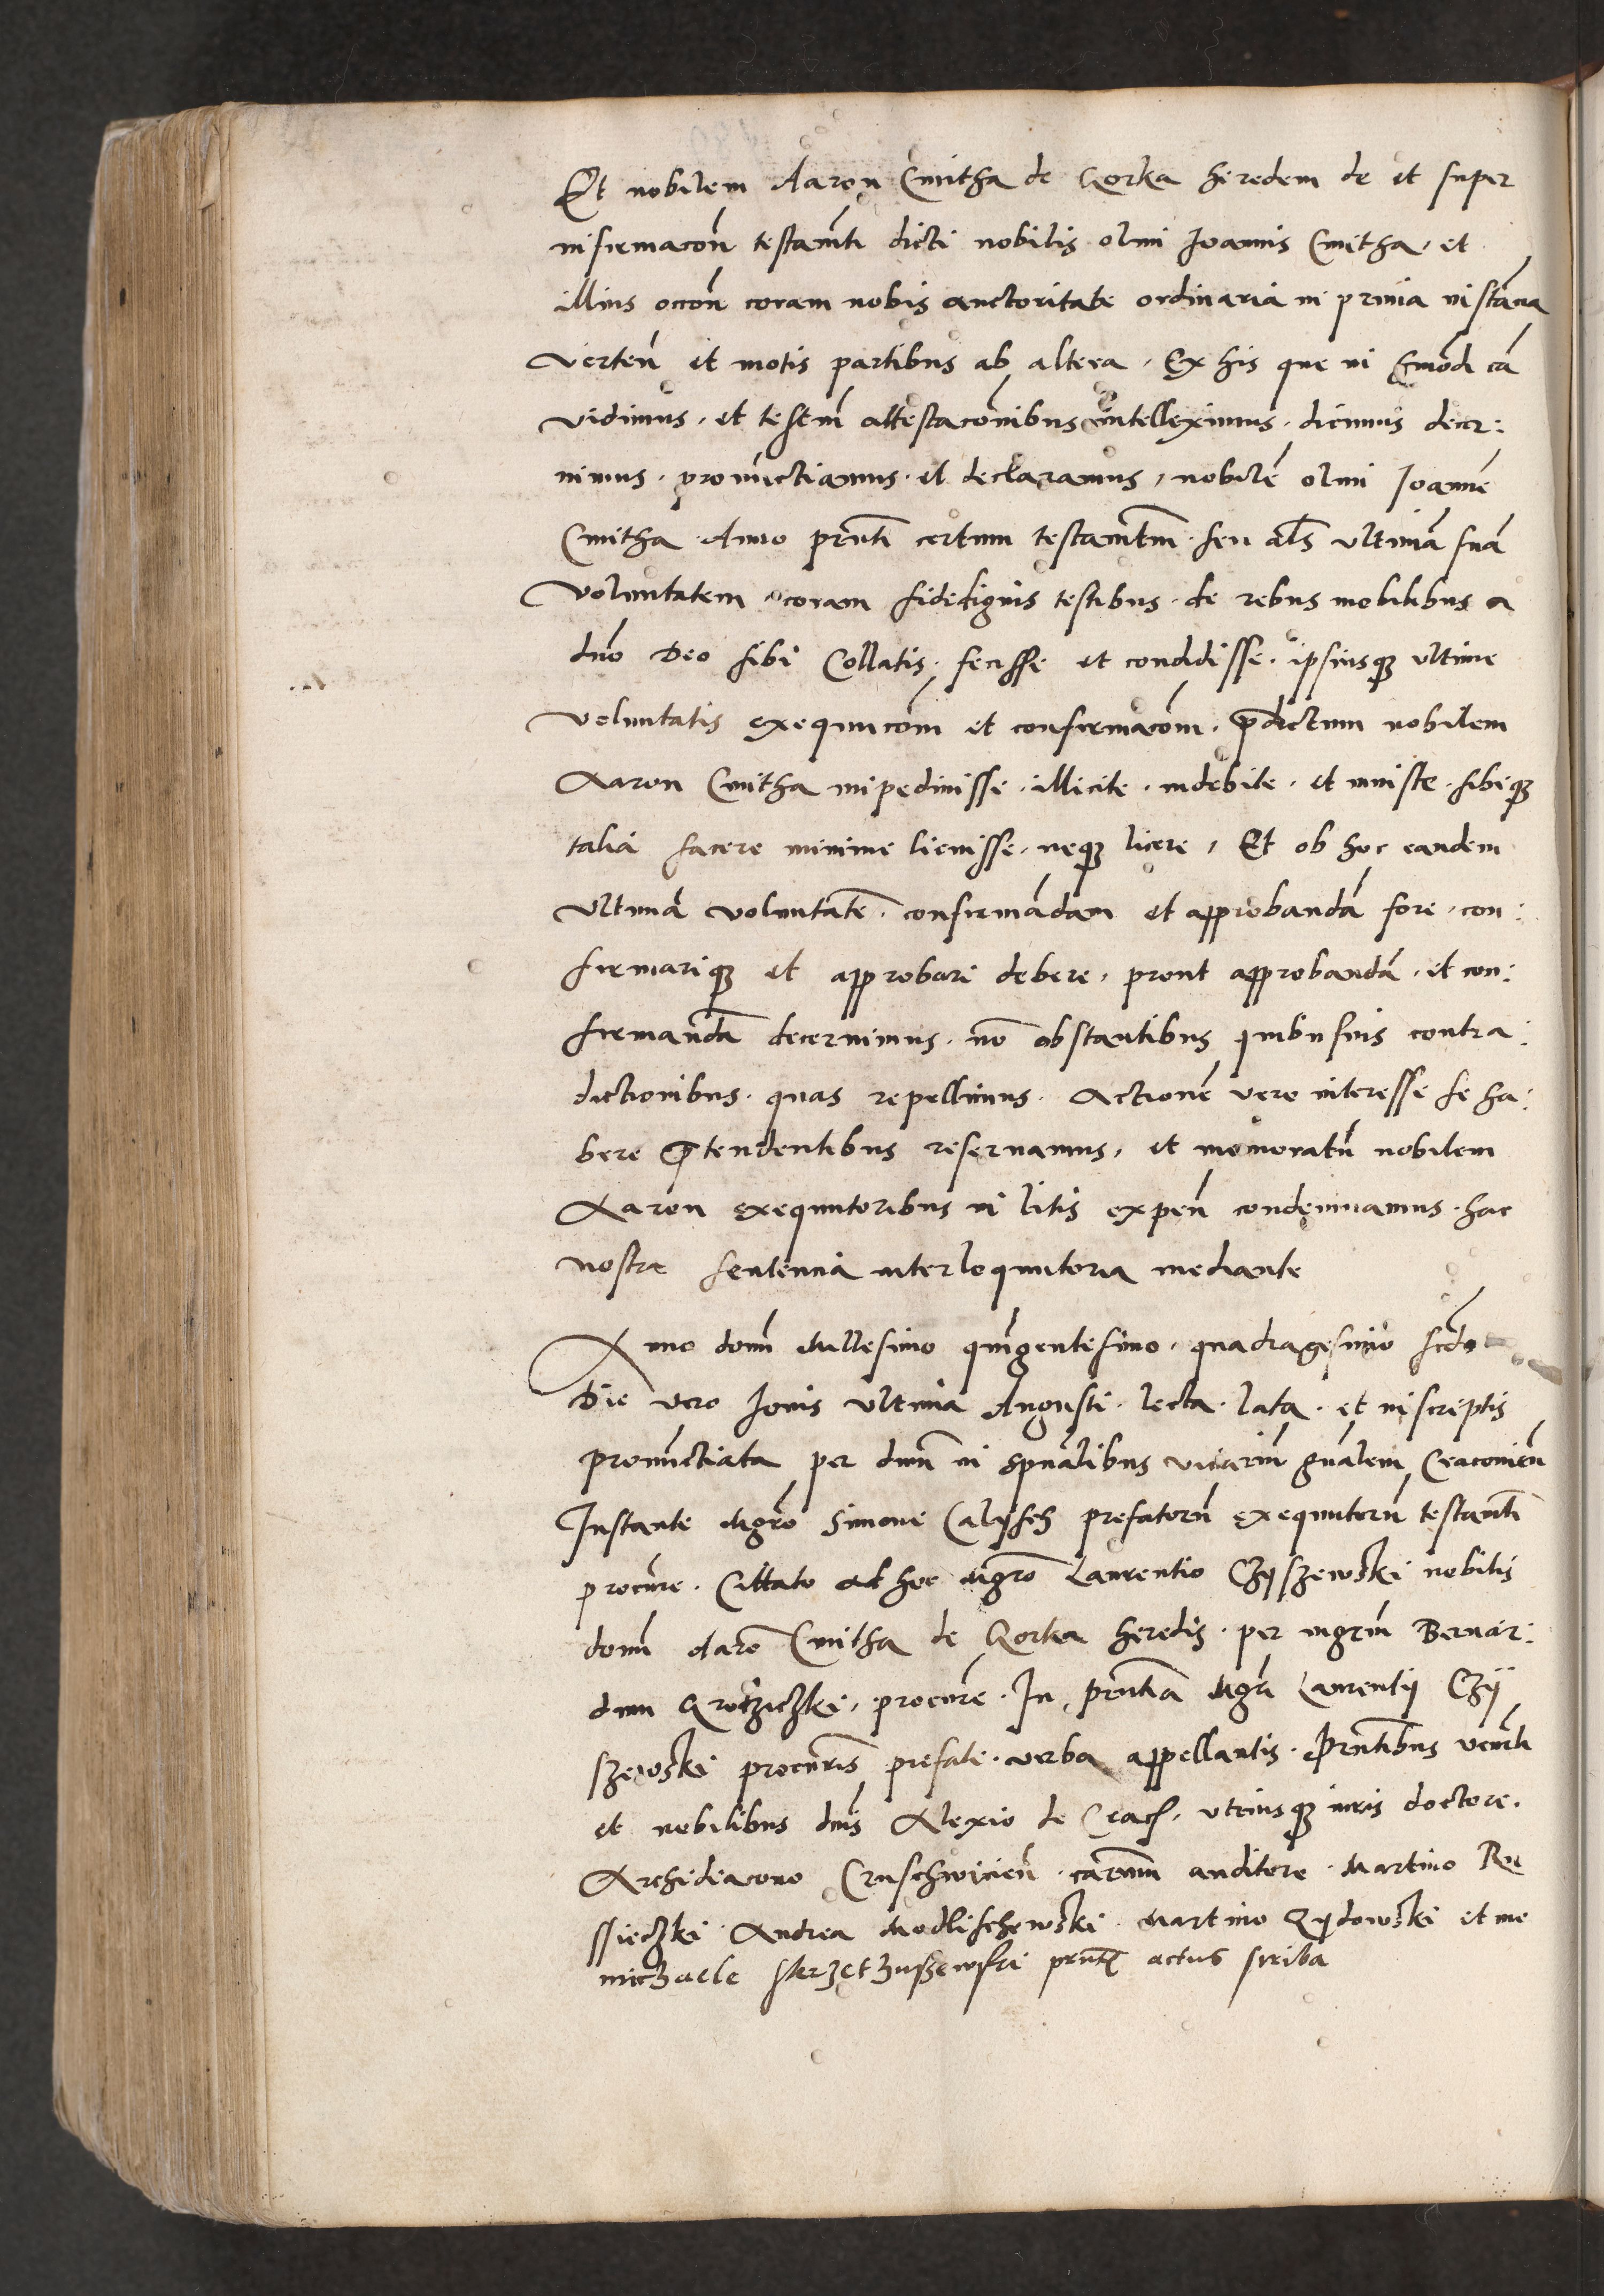 Et nobilem Aaron Cmitha de Gorka heredem de et super
infirmacõn testamti dicti nobilis olim Joannis Cmitha, et
illius occõn coram nobis auctoritate ordinaria in prima instãcia
verteñ et motis partibus ab altera. Ex his que in hmõdi cã
vidimus. et testiũ attestacõnibus intelleximus. dicimus decer:
nimus. pronũctiamus. et declaramus, nobilẽ olim Joannẽ
Cmitha Anno prñti certum testamtũm. seu als ultimã suã
voluntatem coram fidedignis testibus. de rebus mobilibus a
dño Deo sibi Collatis. fecisse et condidisse. ipsiusq3 ultime
voluntatis exequucõni et confirmacõni. p̃dictum nobilem
Aaron Cmitha impedivisse. illicite. indebite. et iniuste. sibiq3
talia facere minime licuisse. neq3 licere, Et ob hoc eandem
ultimã voluntatẽ. confirmãdam et approbandã fore. con:
firmariq3 et approbari debere. prout approbandã. et con:
firmandã decernimus. nõ obstantibus quibusvis contra:
dictionibus. quas repellimus. Actionẽ vero interesse se ha:
bere p̃tendentibus reservamus, et memoratũ nobilem
Aaron exequutoribus in litis expeñ condemnamus. hac
nostra sentencia interloquutoria mediante
Anno domĩ Millesimo quĩgentesimo. quadragesimo scđo
Die vero Jovis ultima Augusti. lecta. lata. et in scriptis
pronũctiata per dnũ in spũalibus vicariũ gñalem Cracovieñ
Instante Mgrõ Simone Calisch prefatorũ exequutorũ testamti
procũre. Cittato ad hoc Mgrõ Laurentio Czyszewski nobilis
domĩ Aarõ Cmitha de Gorka heredis. per mgrũm Bernar:
dum Grodziczki, procũre. In prñtia Mgri Laurentij Czij
szewski procũris prefate. verba appellantis. Prñtibus veñrli
et nobilibus dnĩs Alexio de Crac̃. utriusq3 iuris doctore.
Archidiacono Cruschvicieñ. cãrum auditore. Martino Ru
ssieczki. Andrea Modlischewski. Martino Zydowski et me
michaele prñtis actus scriba